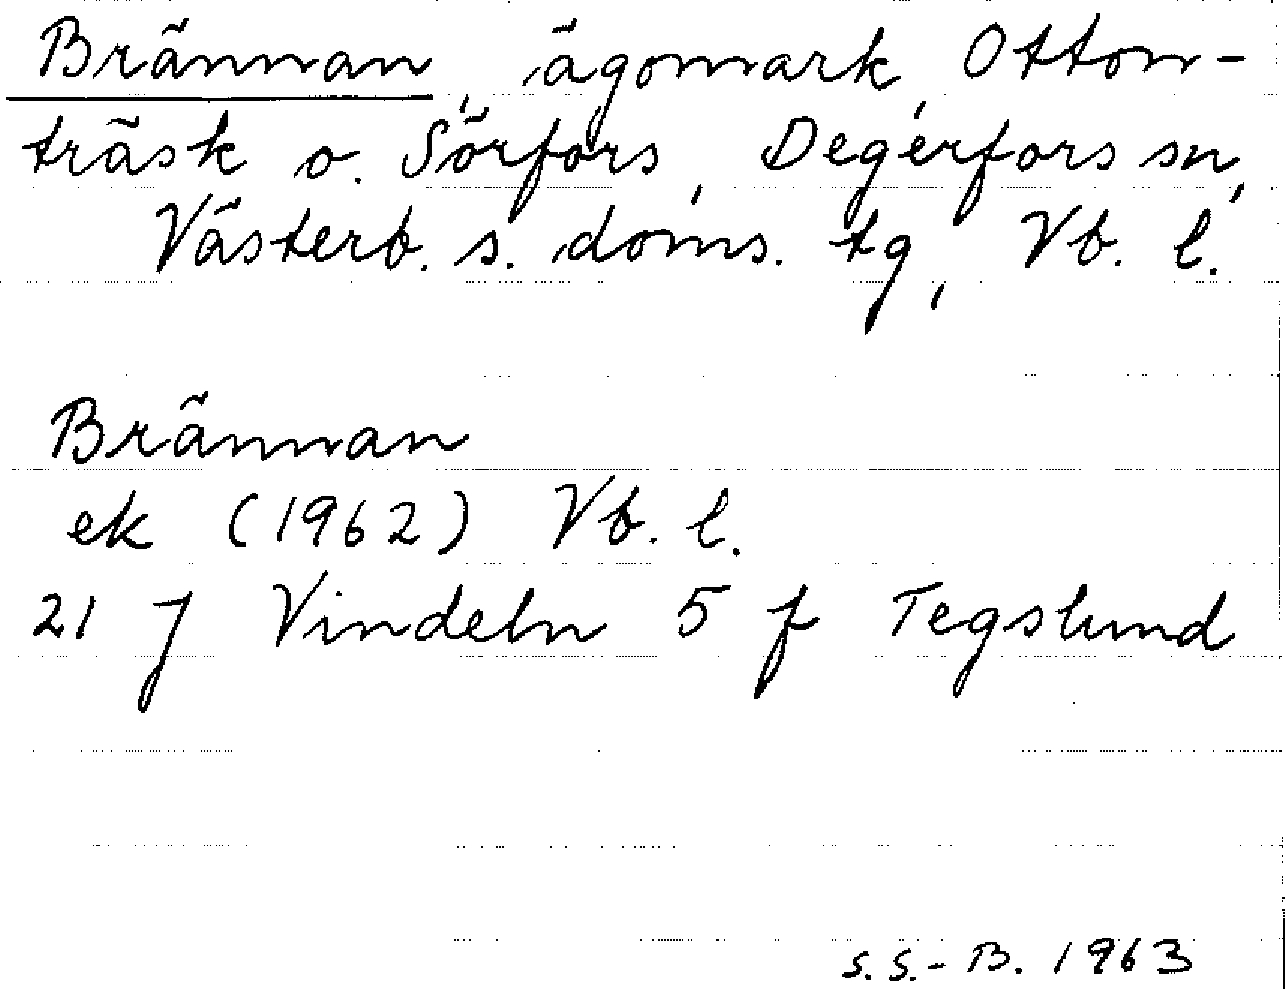 Brännan, ägomark, Otton-
träsk o. Sörfors, Degerfors sn,
Västerb. s. doms. tg, Vb. l.
Brännan
ek (1962) Vb. l.
21 J Vindeln 5 f Tegslund
S.S.-B. 1963